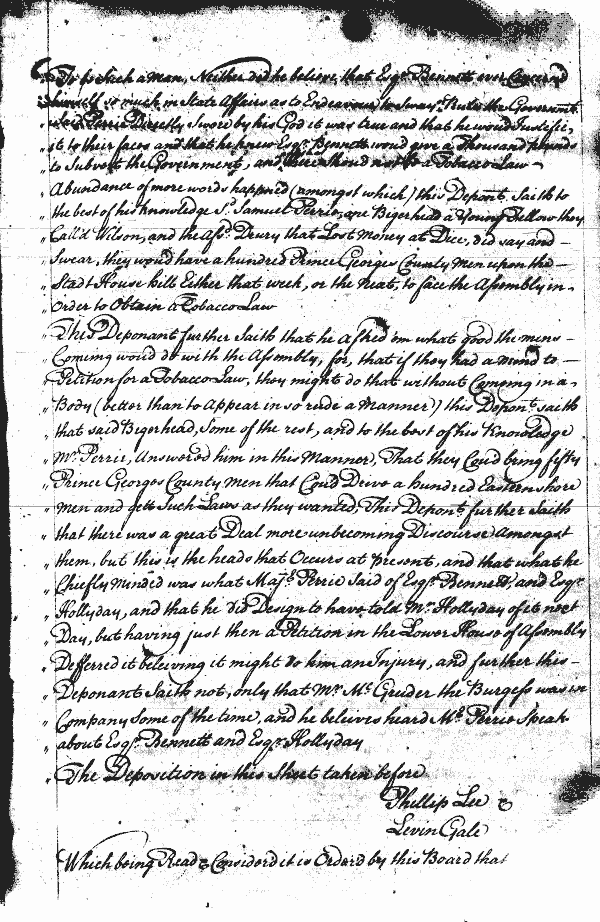 To be Such a Man, Neither did he believe, that Esqr. Bennett ever Concernd
himself so much in State Affairs as to Endeavour to Sway & Rule the Government
said Perrie Directly Swore by his God it was true and that he would Justifie
it to their faces and that he knew Esqr. Bennett would give a Thousand pounds
to Subvert the Government, and there should not be a Tobacco Law
Abundance of more words happened (amongst which) this Depont. Saith to
the best of his knowledge Sd. Samuel Perrie, one Bigerhead a Young Fellow they
Call'd Wilson, and the Afsd. Drury that Lost Money at Dice, did say and
Swear, they would have a hundred Prince Georges County men upon the
Stadt House hill Either that week, or the Next, to face the Assembly in
Order to Obtain a Tobacco Law
This Deponant further Saith that he asked 'em what good the mens
Coming would do with the Assembly, for, that if they had a mind to
Petition for a Tobacco Law, they might do that without Comeing in a
Body (better than to appear in so rude a Manner) this Depont. saith
that said Bigerhead, Some of the rest, and to the best of his Knowledge
Mr. Perrie, Answered him in this Manner, That they Coud bring fifty
Prince Georges County men that Coud Drive a hundred Eastern shore
Men and gett Such Laws as they wanted, This Depont. further Saith
that there was a great Deal more unbecoming Discourse Amongst
them, but this is the heads that Occurs at present, and that what he
Chiefly minded was what Majr. Perrie Said of Esqr. Bennett, and Esqr.
Hollyday, and that he did Design to have told Mr. Hollyday of it next
Day, but having just then a Petition in the Lower House of Assembly
Defferred it beleiving it might do him an Injury, and further this
Deponant Saith not, only that Mr. Mc.Gruder the Burgess was in
Company Some of the time, and he beleives heard Mr. Perrie Speak
about Esqr. Bennett and Esqr. Hollyday
The Deposition in this Sheet taken before
Phillip Lee &
Levin Gale
Which being Read & Considerd it is Orderd by this Board that